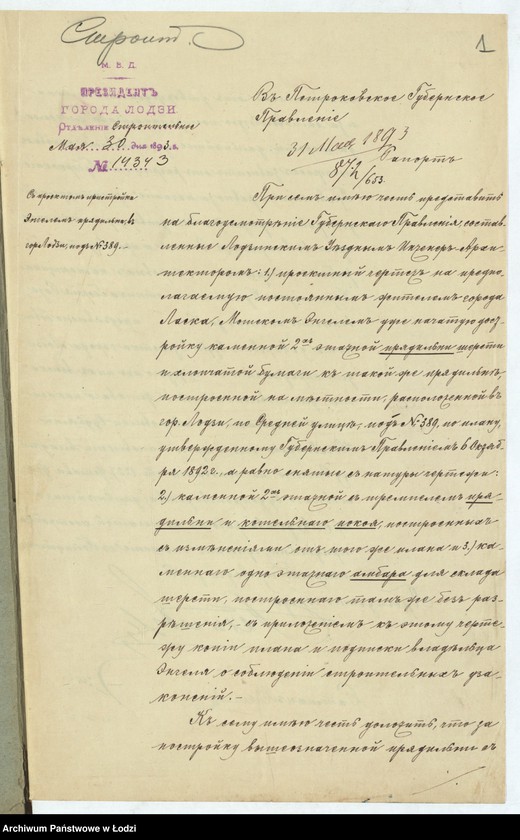 Строит.
1
М. В. Д.
ПРЕЗИДЕНТЪ
ГОРОДА ЛОДЗИ.
Отдѣленіе Строительное
Мая 30 дня 1893 г.
№ 14343
Съ проектомъ пристройки
Энгелемъ прядильни въ
гор. Лодзи, подъ № 389. —
Въ Петроковское Губернское
Правленіе
31 Мая 1893
Рапортъ
При семъ имѣю честь представить
на благоусмотрѣніе Губернскаго Правленія, состав-
ленные Лодзинскимъ Уѣзднымъ Инженеръ-Архи-
текторомъ: 1) проектный чертежъ на предпо-
лагаемую постояннымъ жителемъ города
Ласка, Мошкомъ Энгелемъ уже начатую дост-
ройку каменной 2хъ этажной прядильни шерсти
и хлопчатой бумаги къ такой же прядильнѣ,
построенной на мѣстности, расположенной въ
гор. Лодзи, по Средней улицѣ, подъ № 389, по плану,
утвержденному Губернскимъ Правленіемъ 6 Октяб-
ря 1892 г., а равно снятые съ натуры чертежи:
2) каменной 2хъ этажной съ тремпелемъ пря-
дильни и котельнаго покоя, построенныхъ
съ измѣненіями отъ того же плана и 3) ка-
меннаго одно этажнаго амбара для склада
шерсти, построеннаго тамъ же безъ раз-
рѣшенія, - съ приложеніемъ къ этому черте-
жу копіи плана и подписки владѣльца
Энгеля о соблюденіи строительныхъ уза-
коненій. —
Къ сему имѣю честь доложить, что за
постройку вышеозначенной прядильни съ
Archiwum Państwowe w Łodzi